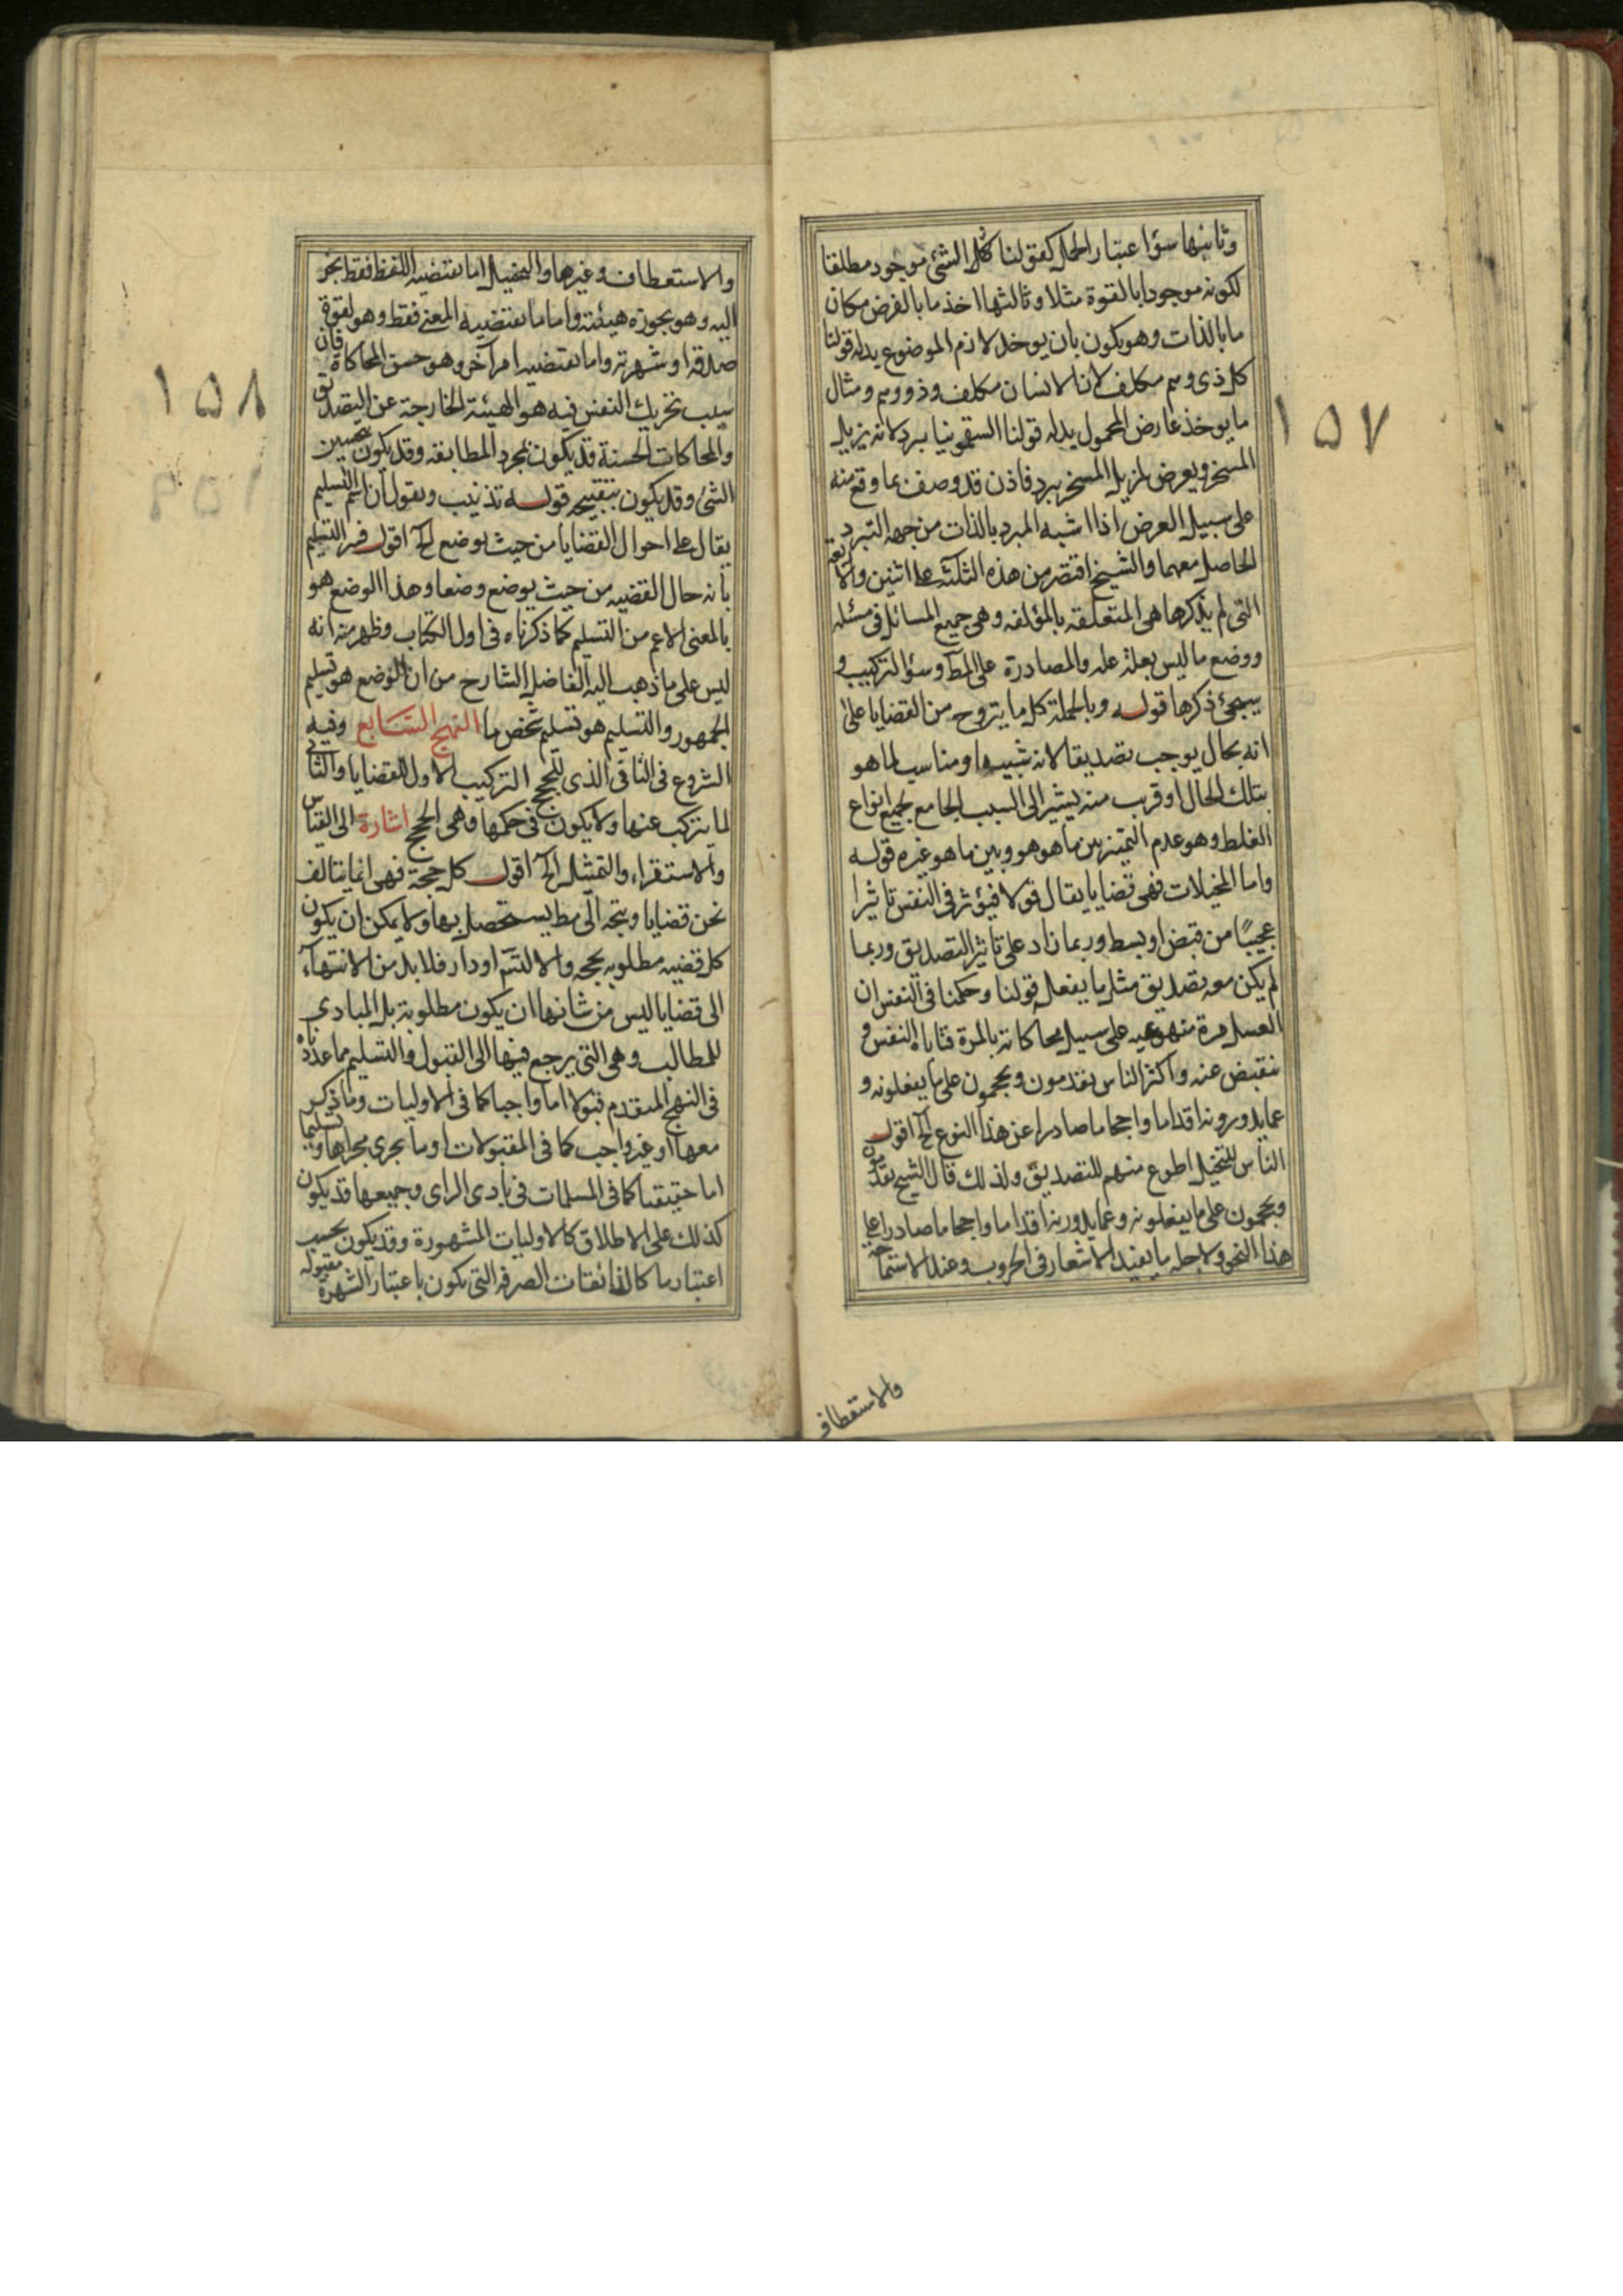 ١٥٧
وثانيها سؤ اعتبار الحمل كقولنا كل الشئ موجود مطلقا
لكونه موجودا بالقوة مثلا وثالثها اخذ ما بالعرض مكان
ما بالذات وهو يكون بان يوخذ لازم الموضوع بدله قولنا
كل ذى وهم مكلف لانا لانسان مكلف وذو وهم ومثال
ما يوخذ عارض المحمول بدله قولنا السقمونيا يبرد لانه يزيل
المسخن ويعرض لمزيل المسخن يبرد فاذن قد وصف بما وقع منه
على سبيل العرض اذا اشبه المبرد بالذات من جهه التبرد
الحاصل معهما والشيخ اقتصر من هذه الثلثه على اثنين والاربعة
التى لم يذكرها هى المتعلقه بالمؤلفه وهى جميع المسائل فى مسئله
ووضع ما ليس بعلة علة والمصادرة على المط وسؤ التركيب و
سيجئ ذكرها قوله وبالجملة كل ما يتروج من القضايا على
انه بحال يوجب تصديقا لانه شبيه او مناسب لما هو
بتلك الحال او قريب منه يشير الى السبب الجامع لجميع انواع
الغلط وهو عدم التميز بين ما هو هو وبين ما هو غيره قوله
واما المخيلات فهى قضايا يقال قولا فيؤثر فى النفس تاثيرا
عجيبًا من قبض او بسط وربما زاد على تاثير التصديق وربما
لم يكن معه تصديق مثل ما يفعله قولنا وحكمنا فى النفس ان
العسل مرة مهوعه على سبيل محاكاته بالمرة فتاباه النفس و
تنقبض عنه واكثر الناس يقدمون ويحجمون على ما يفعلونه و
عما يذرونه اقداما واحجاما صادرا عن هذا النوع الخ اقول
الناس للتخيل اطوع منهم للتصديق ولذلك قال الشيخ يقدمون
ويحجمون على ما يفعلونه وعما يذرونه اقداما واحجاما صادرا على
هذا النحو ولاجله ما يفيد الاشعار فى الحروب وعند الاستماحة
والاستقطاف
١٥٨
والاستعطاف وغيرها والتخييل اما يقتضيه اللفظ فقط بجر
اليه وهو بجوزه هيئته واما ما يقتضيه المعنى فقط وهو لقوة
صدقه او شهرته واما يقتضيه امر آخر وهو حسن المحاكاة فان
سبب تحريك النفس فيه هو الهيئة الخارجة عن التصديق
والمحاكات الحسنة قد يكون بمجرد المطابقه وقد يكون بتحسين
الشئ وقد يكون بتقبيحه قوله تذنيب ويقول ان اسم التسليم
يقال على احوال القضايا من حيث يوضع الخ اقول فسر التسليم
بانه حال القضيه من حيث يوضع وضعا وهذا الوضع هو
بالمعنى الاعم من التسليم كما ذكرناه فى اول الكتاب وظهر منه انه
ليس على ما ذهب اليه الفاضل الشارح من ان الوضع هو تسليم
الجمهور والتسليم هو تسليم شخص ما النهج السابع وفيه
الشروع فى الثانى الذى للحجج التركيب الاول للقضايا والثانى
لما يتركب عنها ولا يكون فى حكمها وهى الحجج اشارة الى القياس
والاستقراء والتمثيل الخ اقول كل حجة فهى انما يتالف
عن قضايا ويتجه الى مط يستحصل بها ولا يمكن ان يكون
كل قضيه مطلوبه بحجه والا لتسم او دار فلا بد من الانتهاء
الى قضايا ليس من شانها ان يكون مطلوبة بل المبادى
للمطالب وهى التى يرجع فيها الى القبول والتسليم مما عددناه
فى النهج المتقدم قبولا اما واجبا كما فى الاوليات وما ذكر
معها او غير واجب كما فى المقبولات او ما يجرى مجراها وتسليما
اما حقيقيا كما فى المسلمات فى بادى الراى وجميعها قد يكون
كذلك على الاطلاق كالاوليات المشهورة وقد يكون بحسب
اعتبار ما كالذائعات الصرفه التى يكون باعتبار الشهرة مقبوله